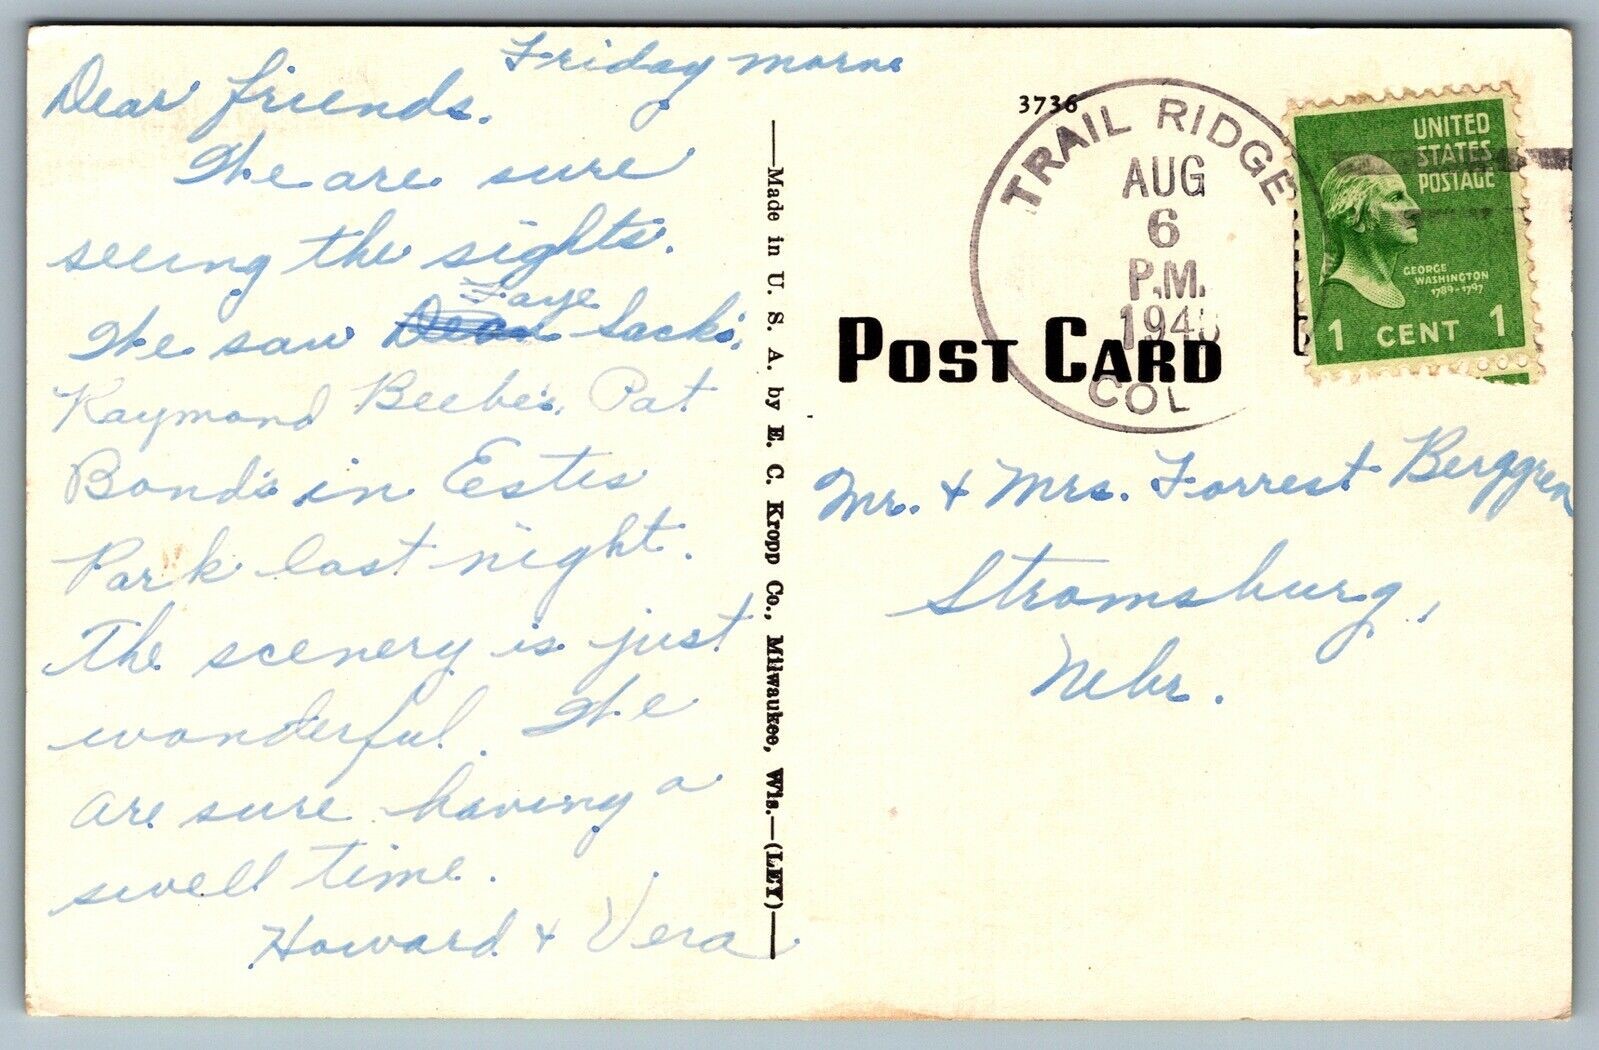 Friday morn.
Dear friends.
We are sure
seeing the sights.
Faye
We saw Dean Sack's,
Raymond Beebe's, Pat
Bond's in Estes
Park last night.
The scenery is just
wonderful. We
are sure having a
swell time.
Howard & Vera
Made in U. S. A. by E. C. Kropp Co., Milwaukee, Wis.—(LEY)
3736
TRAIL RIDGE
AUG
6
P.M.
COL
UNITED
STATES
POSTAGE
GEORGE
WASHINGTON
1789-1797
1 CENT 1
POST CARD
Mr. & Mrs. Forrest Berggren
Stromsburg,
Nebr.